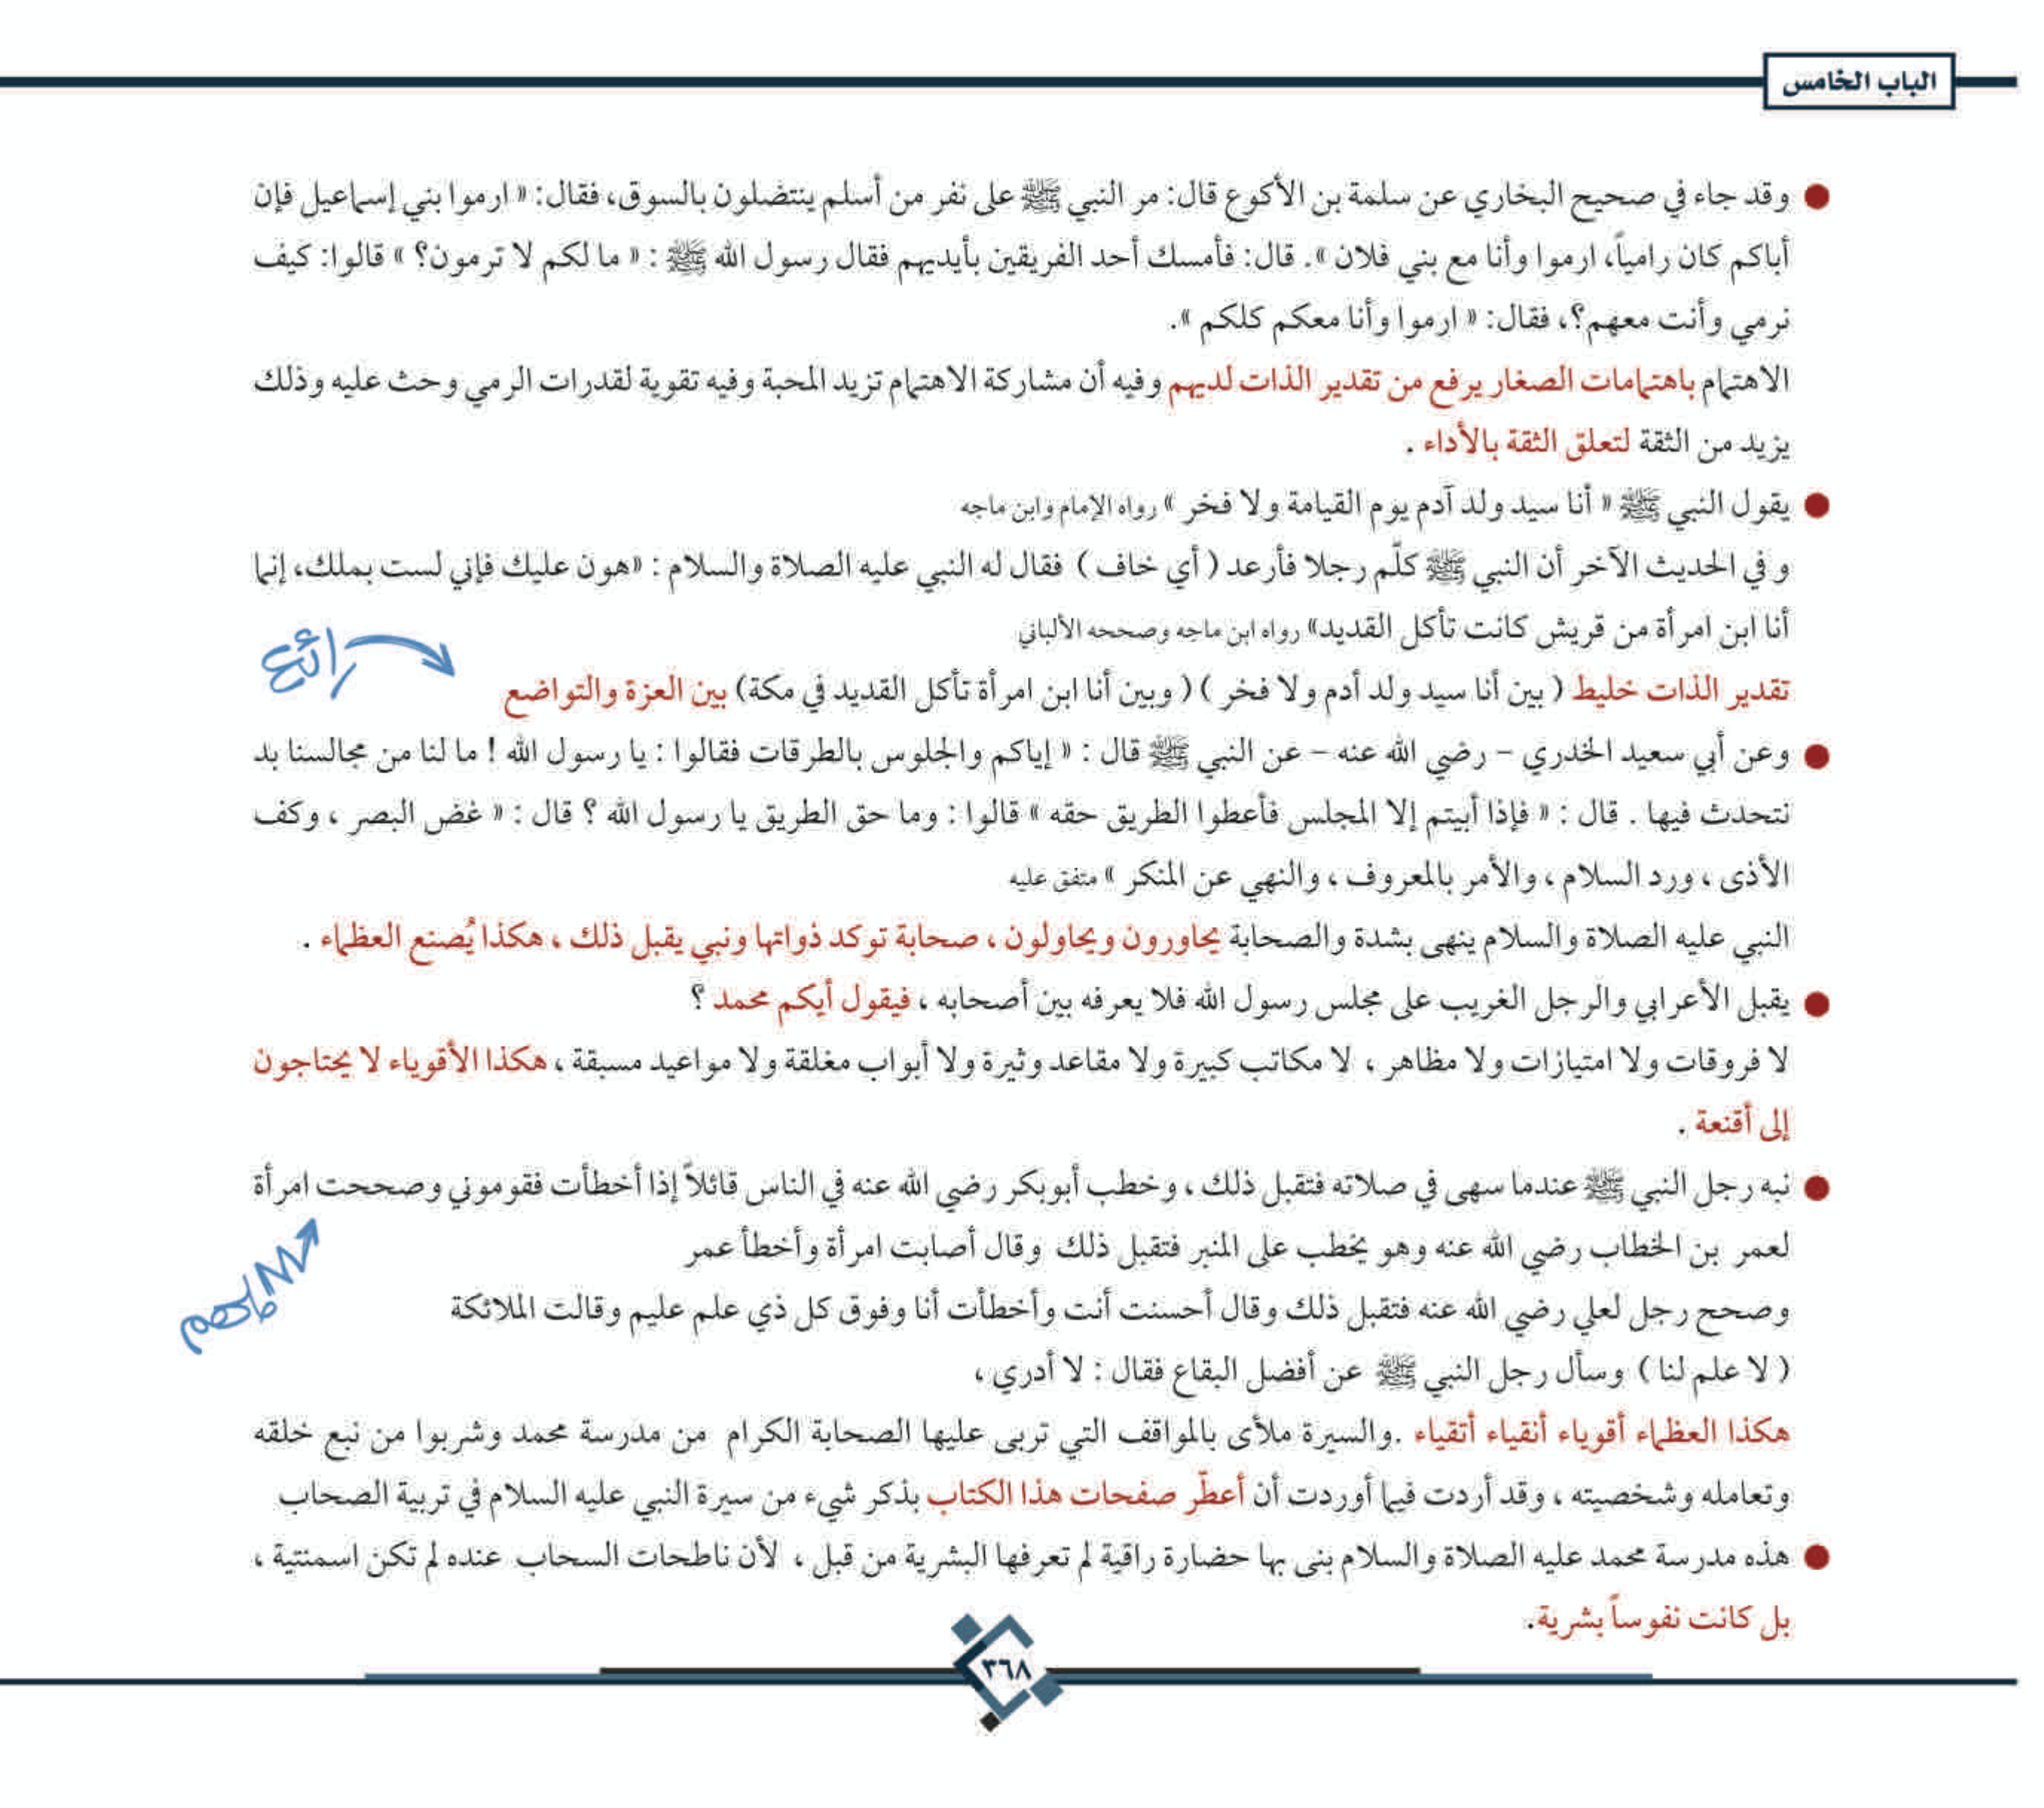 الباب الخامس
وقد جاء في صحيح البخاري عن سلمة بن الأكوع قال: مر النبي ﷺ على نفر من أسلم ينتضلون بالسوق، فقال: « ارموا بني إسماعيل فإن
أباكم كان رامياً، ارموا وأنا مع بني فلان ». قال: فأمسك أحد الفريقين بأيديهم فقال رسول الله ﷺ : « ما لكم لا ترمون؟ » قالوا: كيف
نرمي وأنت معهم؟، فقال: « ارموا وأنا معكم كلكم ».
الاهتمام باهتمامات الصغار يرفع من تقدير الذات لديهم وفيه أن مشاركة الاهتمام تزيد المحبة وفيه تقوية لقدرات الرمي وحث عليه وذلك
يزيد من الثقة لتعلق الثقة بالأداء .
يقول النبي ﷺ « أنا سيد ولد آدم يوم القيامة ولا فخر » رواه الإمام وابن ماجه
و في الحديث الآخر أن النبي ﷺ كلّم رجلا فأرعد ( أي خاف ) فقال له النبي عليه الصلاة والسلام : «هون عليك فإني لست بملك، إنما
أنا ابن امرأة من قريش كانت تأكل القديد» رواه ابن ماجه وصححه الألباني
رائع
تقدير الذات خليط ( بين أنا سيد ولد أدم ولا فخر ) ( وبين أنا ابن امرأة تأكل القديد في مكة) بين العزة والتواضع
وعن أبي سعيد الخدري – رضي الله عنه – عن النبي ﷺ قال : « إياكم والجلوس بالطرقات فقالوا : يا رسول الله ! ما لنا من مجالسنا بد
نتحدث فيها . قال : « فإذا أبيتم إلا المجلس فأعطوا الطريق حقه » قالوا : وما حق الطريق يا رسول الله ؟ قال : « غض البصر ، وكف
الأذى ، ورد السلام ، والأمر بالمعروف ، والنهي عن المنكر » متفق عليه
النبي عليه الصلاة والسلام ينهى بشدة والصحابة يحاورون ويحاولون ، صحابة توكد ذواتها ونبي يقبل ذلك ، هكذا يُصنع العظماء .
يقبل الأعرابي والرجل الغريب على مجلس رسول الله فلا يعرفه بين أصحابه ، فيقول أيكم محمد ؟
لا فروقات ولا امتيازات ولا مظاهر ، لا مكاتب كبيرة ولا مقاعد وثيرة ولا أبواب مغلقة ولا مواعيد مسبقة ، هكذا الأقوياء لا يحتاجون
إلى أقنعة .
نبه رجل النبي ﷺ عندما سهى في صلاته فتقبل ذلك ، وخطب أبوبكر رضي الله عنه في الناس قائلاً إذا أخطأت فقوموني وصححت امرأة
لعمر بن الخطاب رضي الله عنه وهو يخطب على المنبر فتقبل ذلك وقال أصابت امرأة وأخطأ عمر
وصحح رجل لعلي رضي الله عنه فتقبل ذلك وقال أحسنت أنت وأخطأت أنا وفوق كل ذي علم عليم وقالت الملائكة
( لا علم لنا ) وسأل رجل النبي ﷺ عن أفضل البقاع فقال : لا أدري ،
هكذا العظماء أقوياء أنقياء أتقياء .والسيرة ملأى بالمواقف التي تربى عليها الصحابة الكرام من مدرسة محمد وشربوا من نبع خلقه
وتعامله وشخصيته ، وقد أردت فيما أوردت أن أعطّر صفحات هذا الكتاب بذكر شيء من سيرة النبي عليه السلام في تربية الصحاب
هذه مدرسة محمد عليه الصلاة والسلام بنى بها حضارة راقية لم تعرفها البشرية من قبل ، لأن ناطحات السحاب عنده لم تكن اسمنتية ،
بل كانت نفوساً بشرية.
٣٦٨